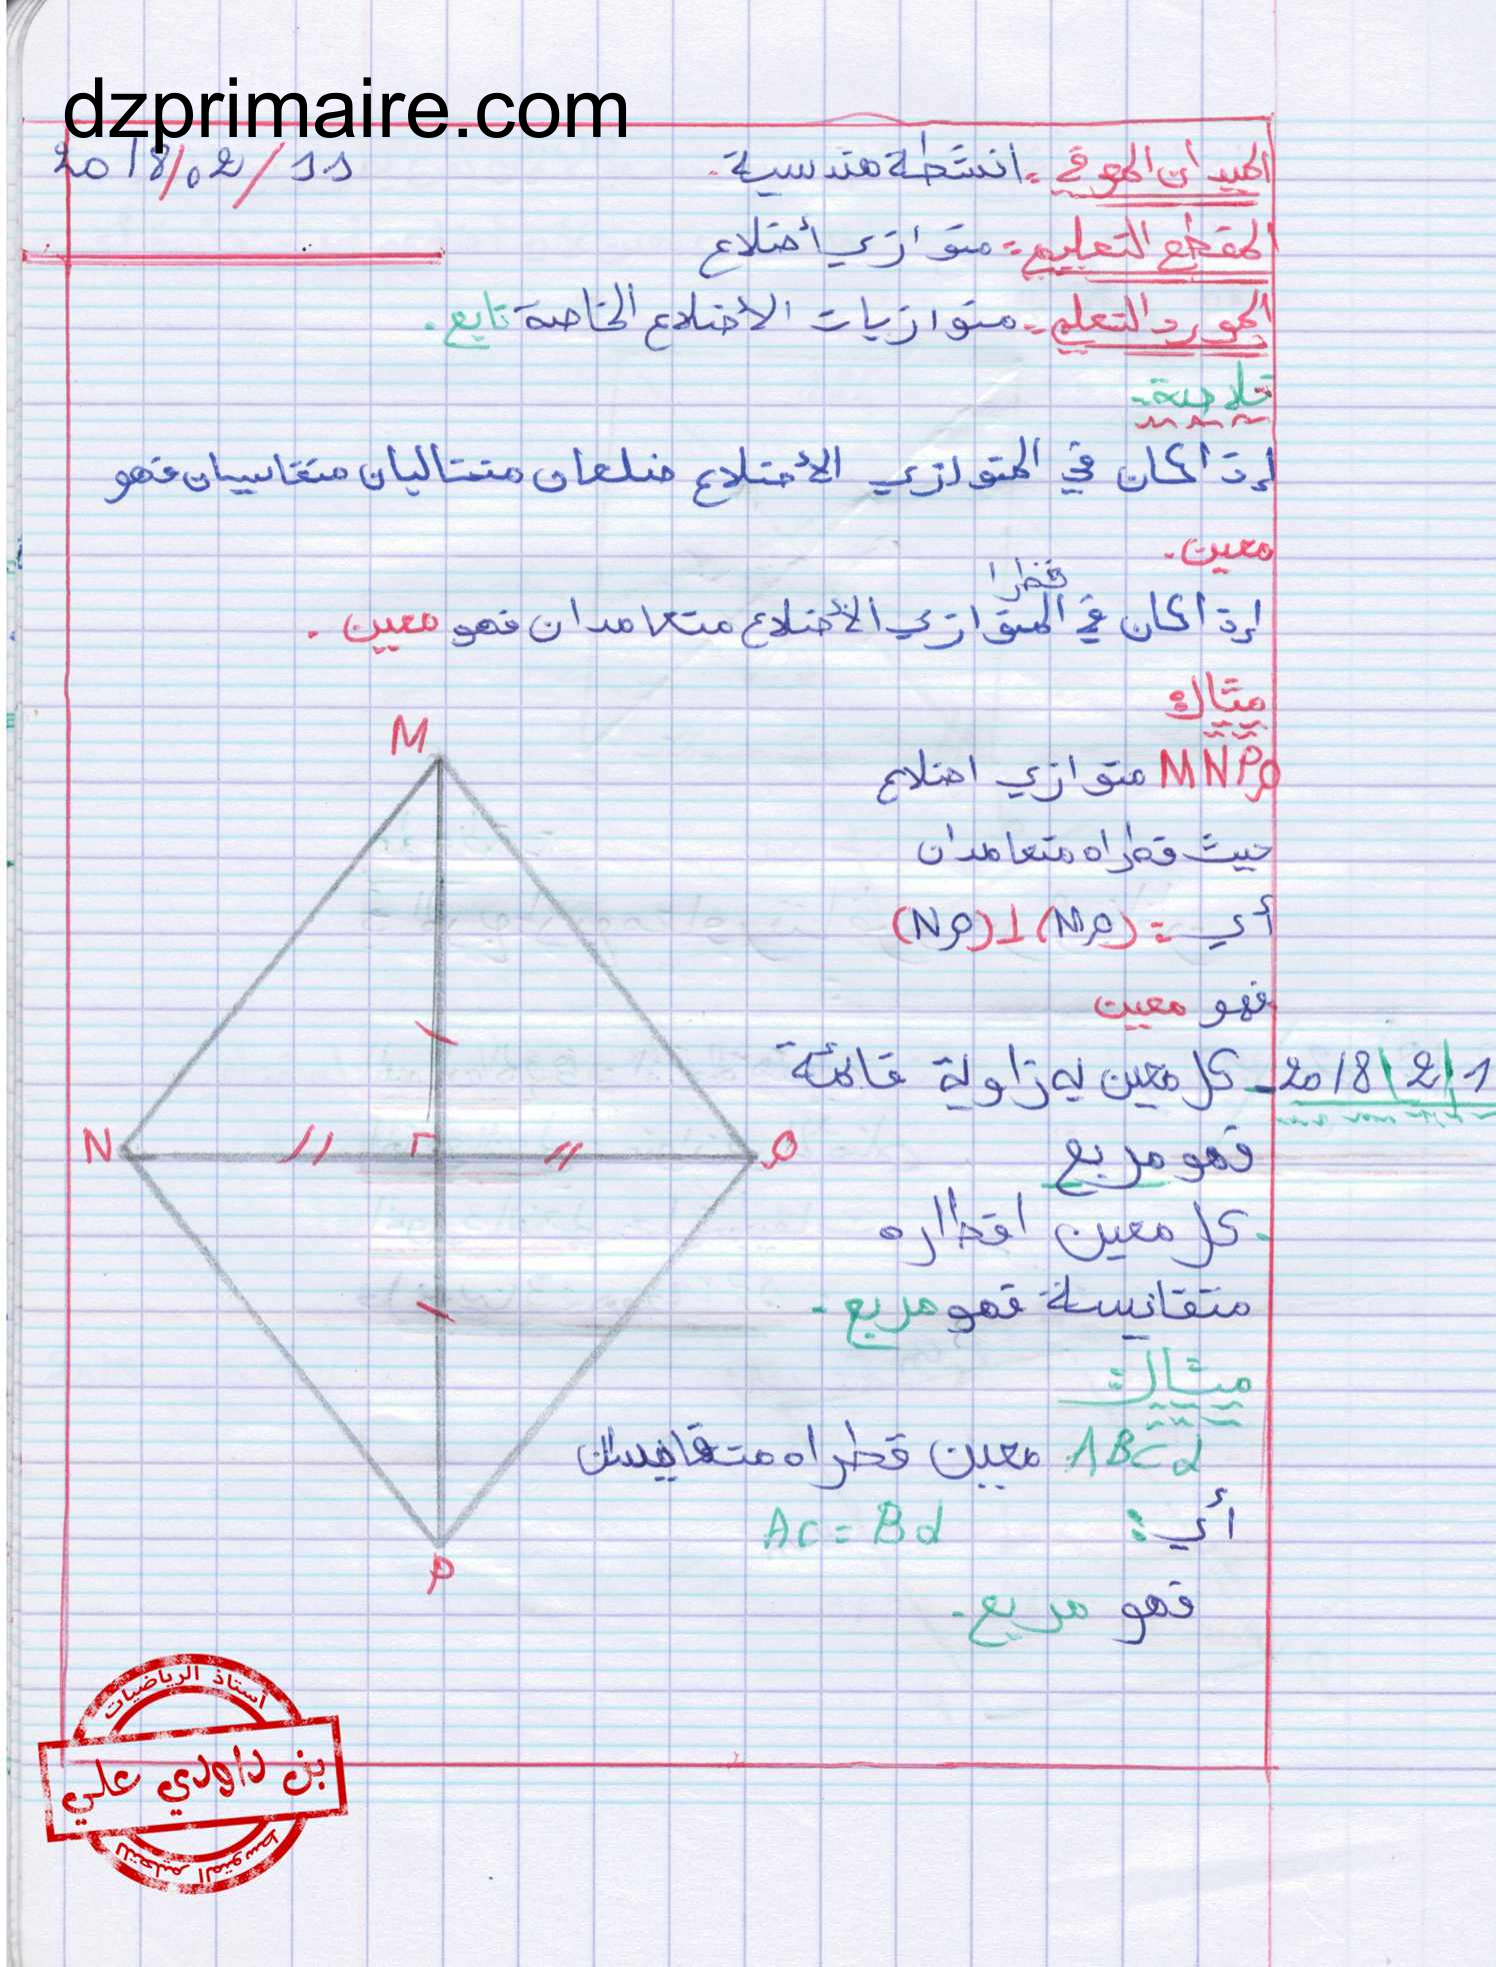 dzprimaire.com
2018/02/11
الميدان المعرفي :- انشطة هندسية.
المقطع التعليمي :- متوازي أضلاع
المورد التعلمي :- متوازيات الأضلاع الخاصة تابع.
خلاصة:-
إذا كان في المتوازي الأضلاع ضلعان متتاليان متقاسيان فهو
معين.
قطرا
إذا كان في المتوازي الأضلاع متعامدان فهو معين.
مثال:
MNPQ متوازي اضلاع
حيث قطراه متعامدان
أي: (MP)⊥(NQ)
فهو معين
2018/2/1
- كل معين به زاوية قائمة
فهو مربع
- كل معين اقطاره
متقايسة فهو مربع.
مثال:
ABCd معين قطراه متقايسان
أي: AC = Bd
فهو مربع.
M
N
Q
P
أستاذ الرياضيات
بن داودي علي
للتعليم المتوسط